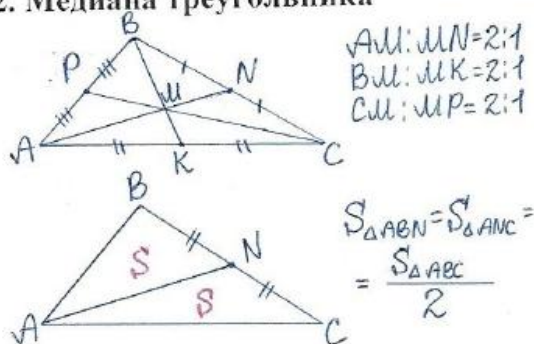 2. Медиана треугольника
B
P
N
M
A
K
C
AM:MN=2:1
BM:MK=2:1
CM:MP=2:1
B
N
S
S
A
C
S△ABN=S△ANC=
= S△ABC
2